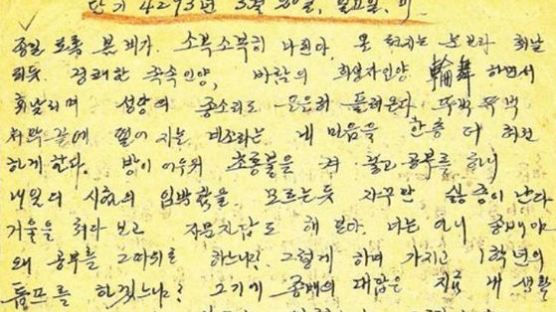 단기 4293년 3월 20일, 일요일, 비
종일 토록 봄비가 소부소부히 나린다. 못 현지는 눈보라 휘날
리듯. 경쾌한 족속인양, 바람의 희생자인양 輪舞 하면서
휘날리며 성당의 종소리도 은은히 들려온다. 뚝뚝 뚝뚝
처막 끝에 떨어 지는 빗소리는 내 마음을 한층 더 처전
하게 한다. 방이 어두워 초롱불을 켜 놓고 공부를 하니
내일의 시험의 임박함을 모르는듯 자꾸만 싫증이 난다
거울을 쳐다 보고 자문자답도 해 보아. 너는 아니 종배야
왜 공부를 그따위로 하느냐? 그렇게 하여 가지고 1학년의
톱프를 하겠느냐? 그기에 종배의 대답은 지금 내 생활